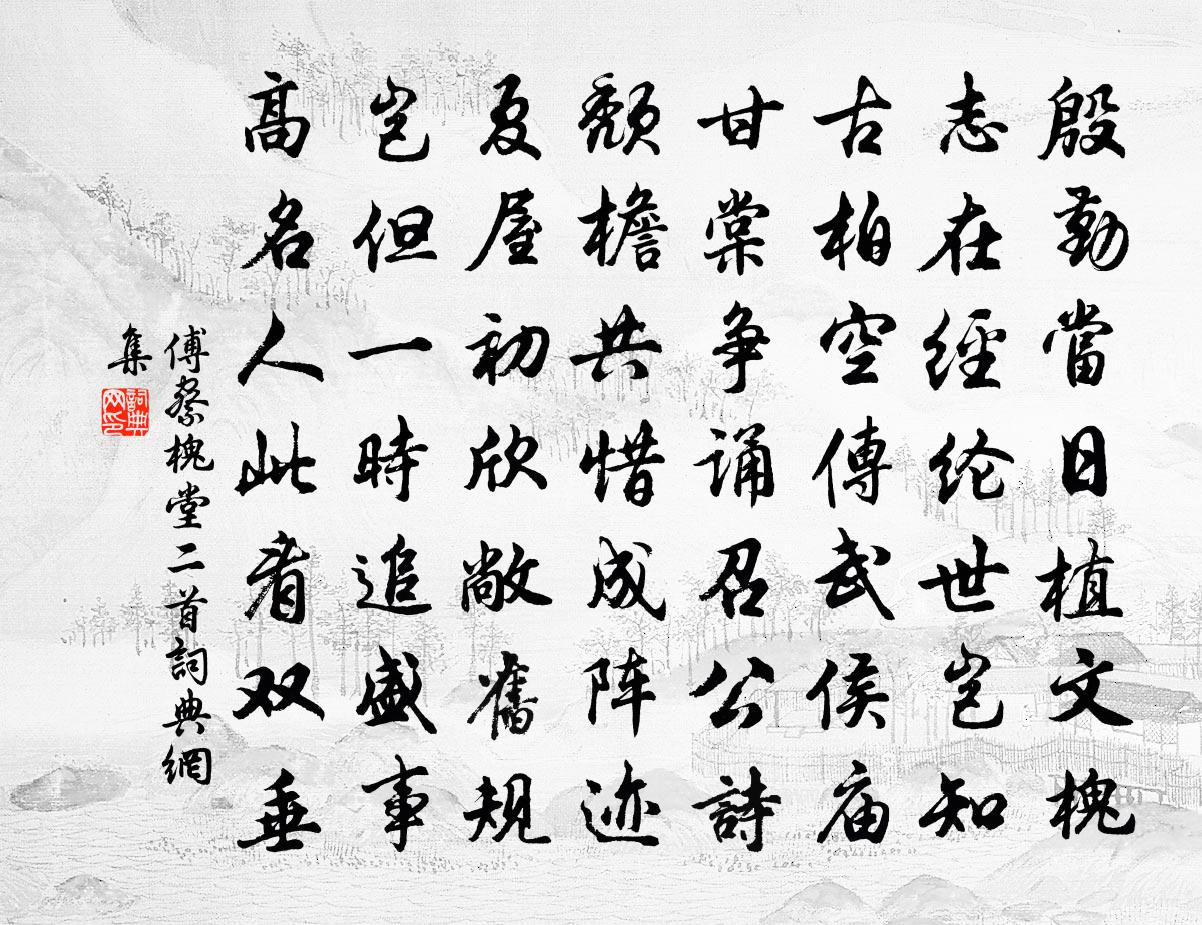 殷勤當日植文槐
志在經纶世岂知
古柏空傳武侯庙
甘棠争诵召公詩
颓檐共惜成阵迹
夏屋初欣敞舊規
岂但一時追盛事
高名人此看双垂
傅察槐堂二首詞典網
集
詞典
网印